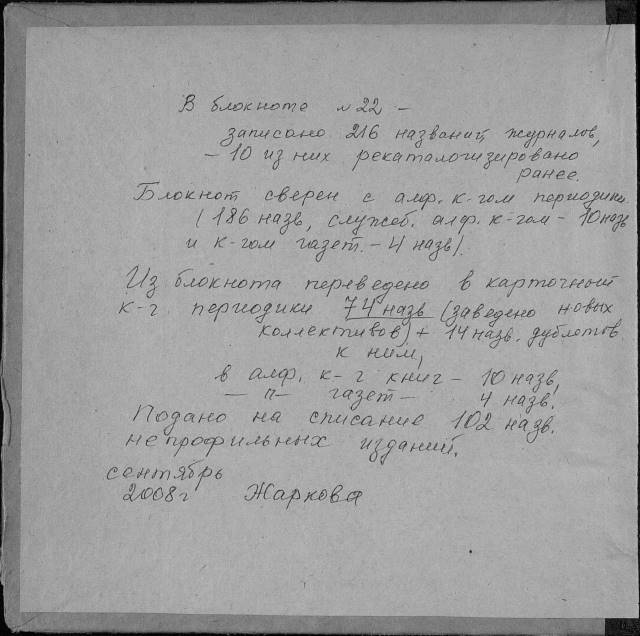 В блокноте №22 –
записано 216 названий журналов,
– 10 из них рекаталогизировано
ранее.
Блокнот сверен с алф. к-гом периодики
(186 назв, служеб. алф. к-гом – 10 назв
и к-гом газет. – 4 назв).
Из блокнота переведено в карточный
к-г периодики 74 назв (заведено новых
коллективов) + 14 назв. дублетов
к ним,
в алф. к-г книг – 10 назв,
– п – газет – 4 назв.
Подано на списание 102 назв.
непрофильных изданий.
сентябрь
2008г Жаркова